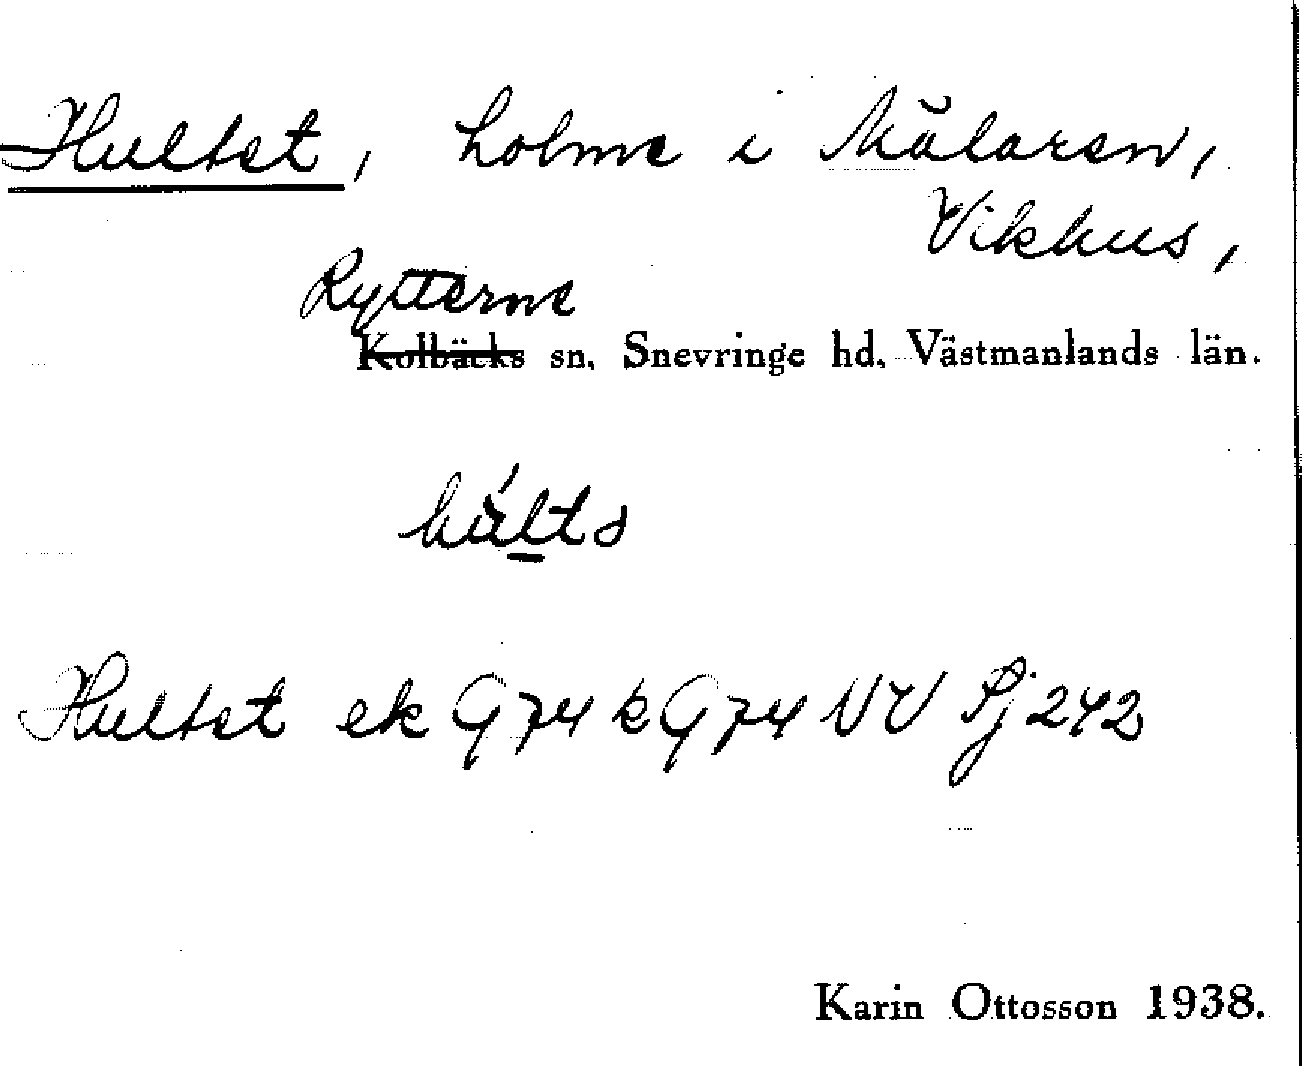 Hultet, holme i Mälaren,
Vikhus,
Rytterne
Kolbäcks sn, Snevringe hd, Västmanlands län.
húlts
Hultet ek G 74 k G 74 NV Sj 242
Karin Ottosson 1938.